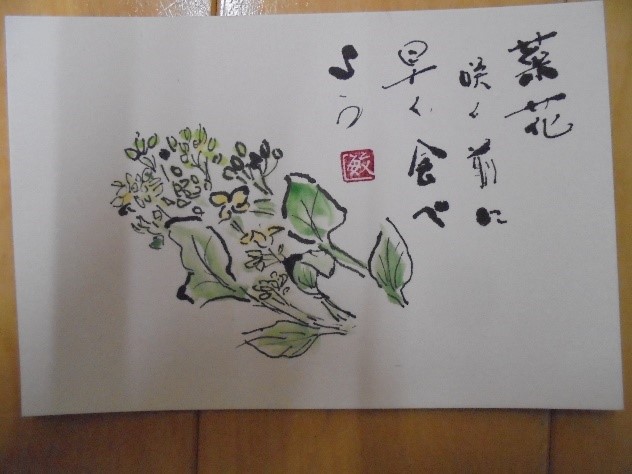 菜花
咲く前に
早く食べ
よう
敏